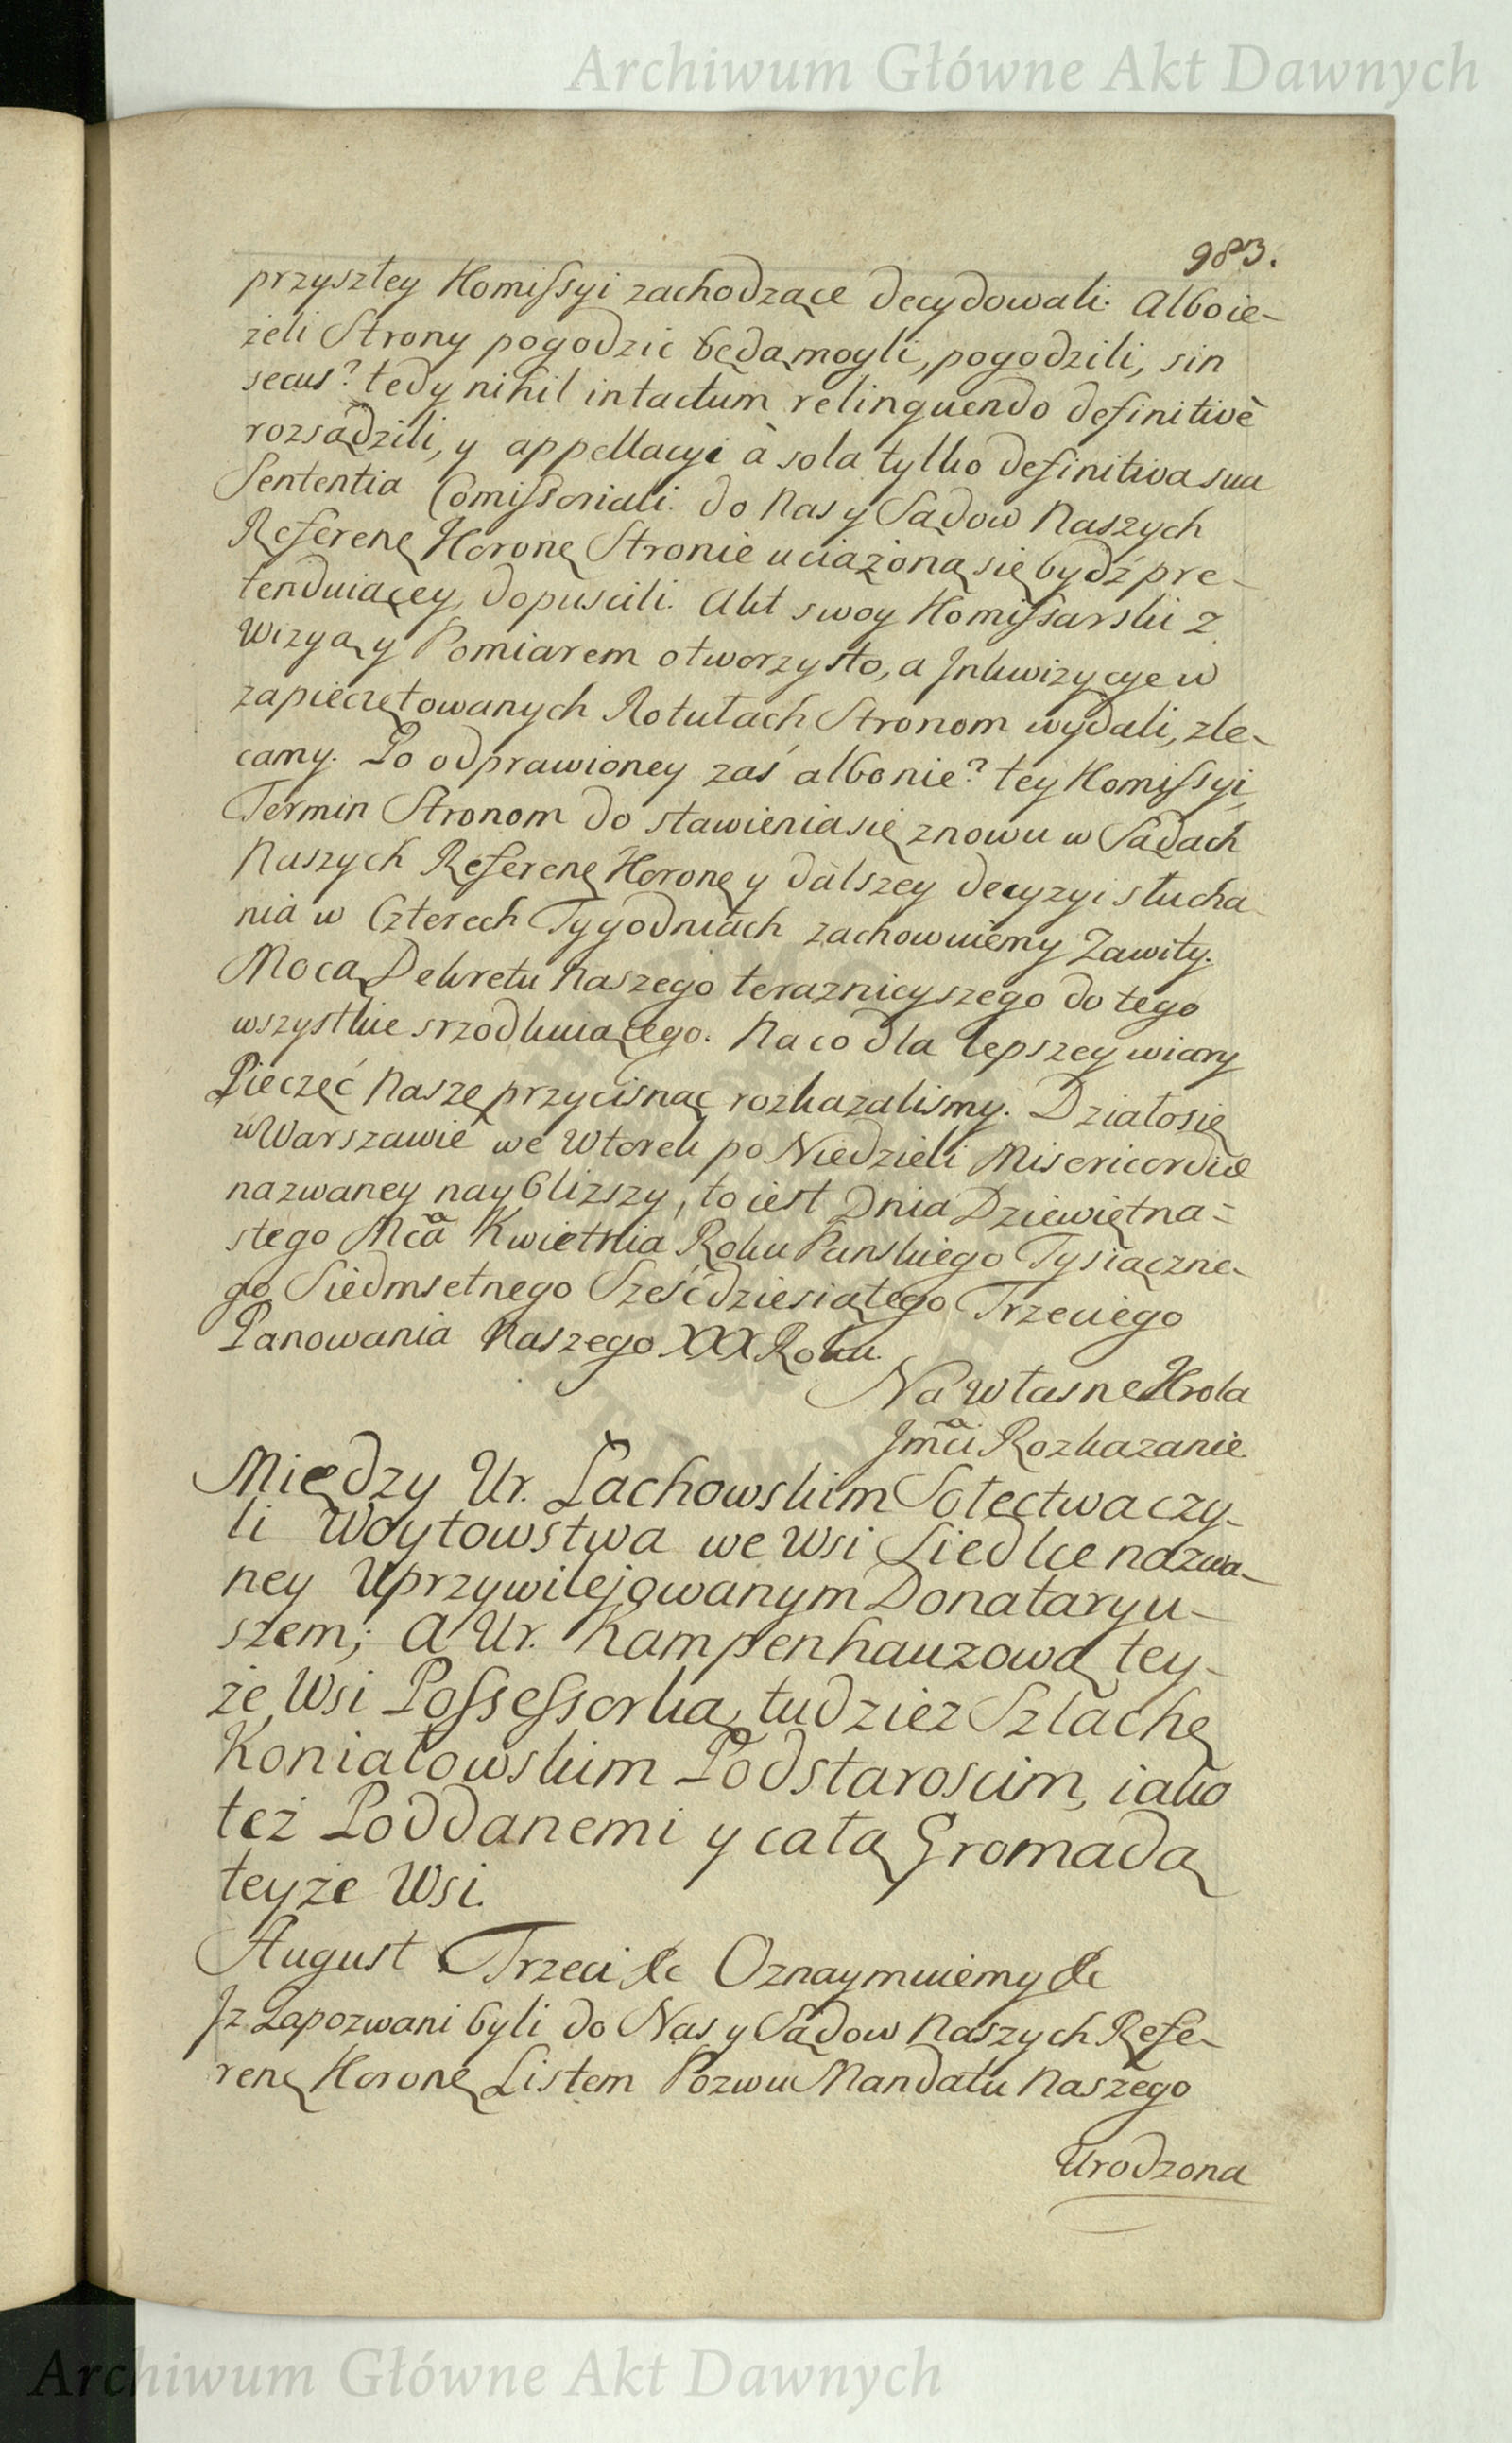 Archiwum Główne Akt Dawnych
983.
przyszłey Komissyi zachodzące decydowali. Alboie-
żeli Strony pogodzic będą mogli, pogodzili, sin
secus? tedy nihil intactum relinquendo definitivè
rozsądzili, y appellacyi à sola tylko definitiva sua
Sententia Comissoriali. do Nas y Sądow Naszych
Referenę Koronę Stronie uciążoną się bydź pre-
tenduiącey, dopuscili. Akt swoy Komissarski z
Wizyą y Pomiarem otworzysto, a Jnkwizycye w
zapieczętowanych Rotułach Stronom wydali, zle-
camy. Po odprawioney zaś albo nie? tey Komissyi
Termin Stronom do stawienia się znowu w Sądach
Naszych Referenę Koronę y dalszey decyzyi słucha
nia w Czterech Tygodniach zachowuiemy Zawity.
Mocą Dekretu Naszego teraznieyszego do tego
wszystkie srzodkuiącego. Na co dla lepszey wiary
Pieczęć Naszę przycisnąc rozkazalismy. Działo się
w Warszawie we Wtorek po Niedzieli Misericordiæ
nazwaney naybliższy, to iest Dnia Dziewiętna=
stego Mcã Kwietnia Roku Panskiego Tysiączne-
go Siedmsetnego Sześćdziesiątego Trzeciego
Panowania Naszego XXX Roku.
Na Własne Krola
Jmći Rozkazanie
Między Ur. Lachowskim Sołectwa czy-
li Woytowstwa we Wsi Siedlce nazwa-
ney Uprzywilejowanym Donataryu-
szem; A Ur. Kampenhauzową tey-
że Wsi Possessorką, tudzież Szlachę
Koniatowskim Podstaroscim, iako
też Poddanemi y całą Gromadą
teyże Wsi.
August Trzeci &c Oznaymuiemy &c
Jz Zapozwani byli do Nas y Sądow Naszych Refe-
renę Koronę Listem Pozwu Mandatu Naszego
Urodzona
Archiwum Główne Akt Dawnych